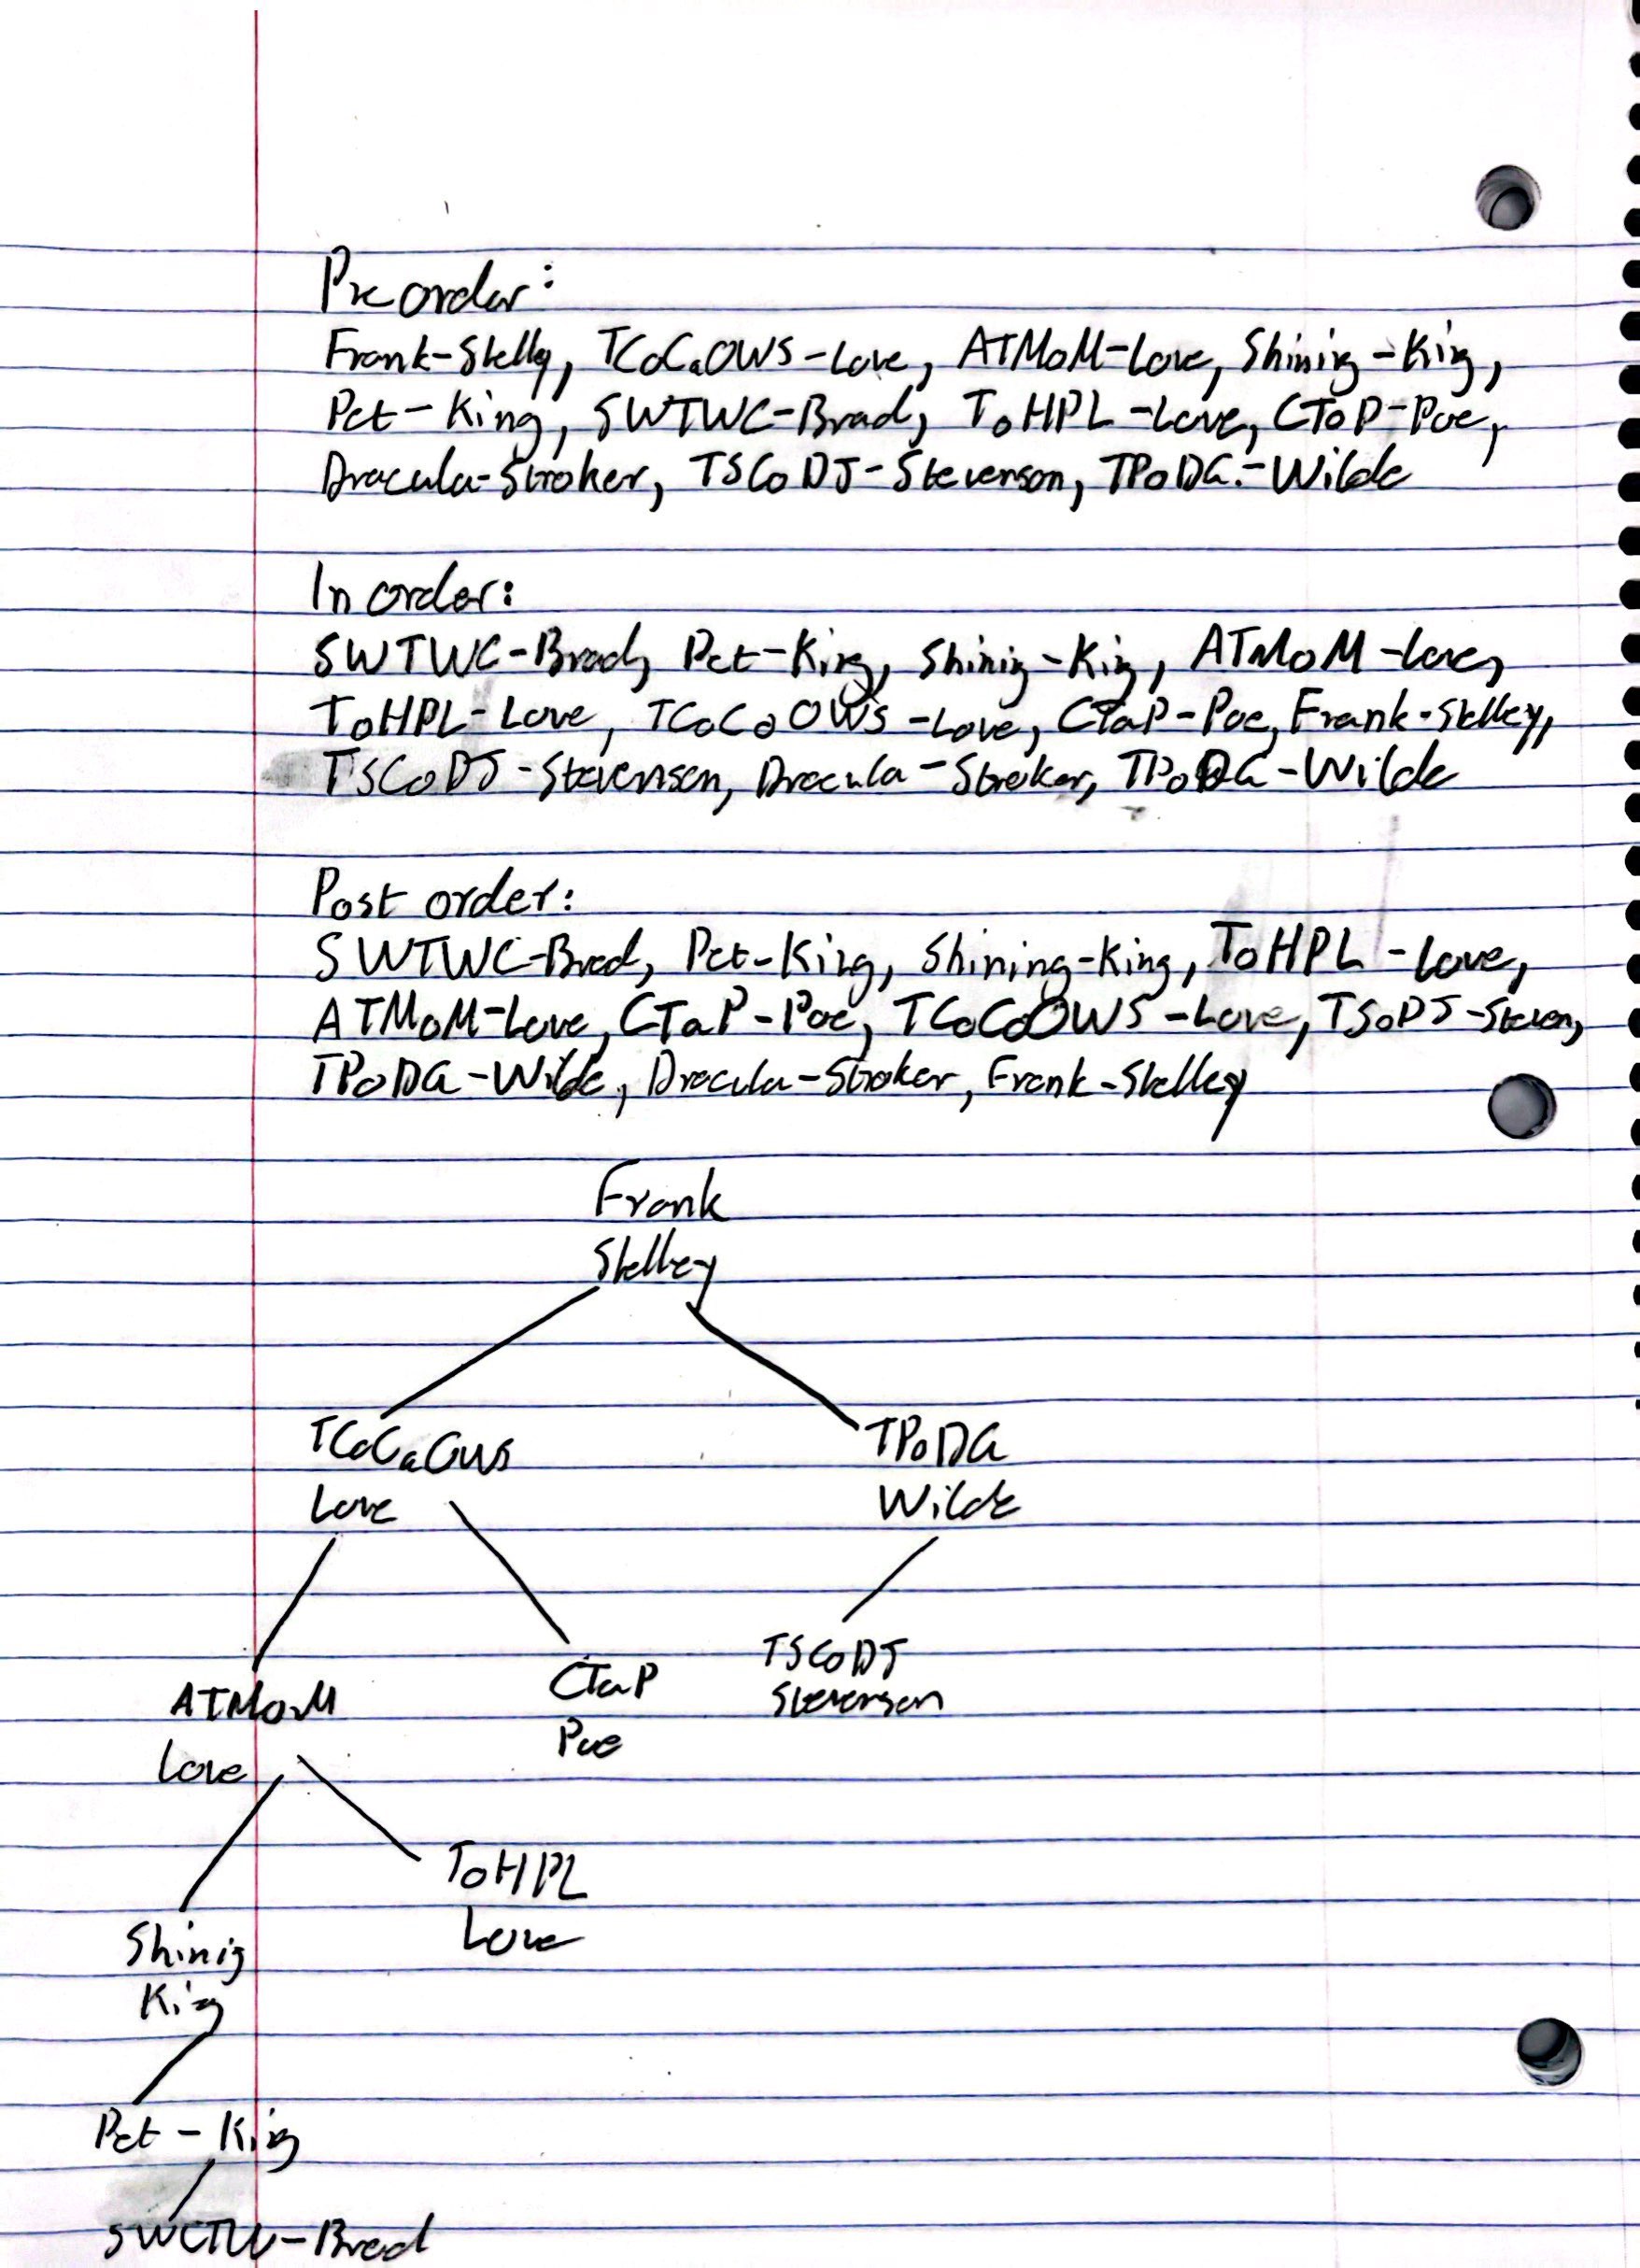 Preorder:
Frank-Shelly, TCoCaOWS-Love, ATMoM-Love, Shinig-King,
Pet-King, SWTWC-Brad, ToHPL-Love, CTaP-Poe,
Dracula-Stroker, TSCoDJ-Stevenson, TPoDG-Wilde
In order:
SWTWC-Brad, Pet-King, Shinig-King, ATMoM-Love,
ToHPL-Love, TCoCaOWS-Love, CTaP-Poe, Frank-Shelley,
TSCoDJ-Stevenson, Dracula-Stroker, TPoDG-Wilde
Post order:
SWTWC-Brad, Pet-King, Shining-King, ToHPL-Love,
ATMoM-Love, CTaP-Poe, TCoCaOWS-Love, TSoDJ-Steven,
TPoDG-Wilde, Dracula-Stroker, Frank-Shelley
Frank
Shelley
TCoCaOWS TPoDG
Love Wilde
TSCoDJ
ATMoM CTaP Stevenson
Love Poe
ToHPL
Shinig Love
King
Pet-King
SWCTW-Brad